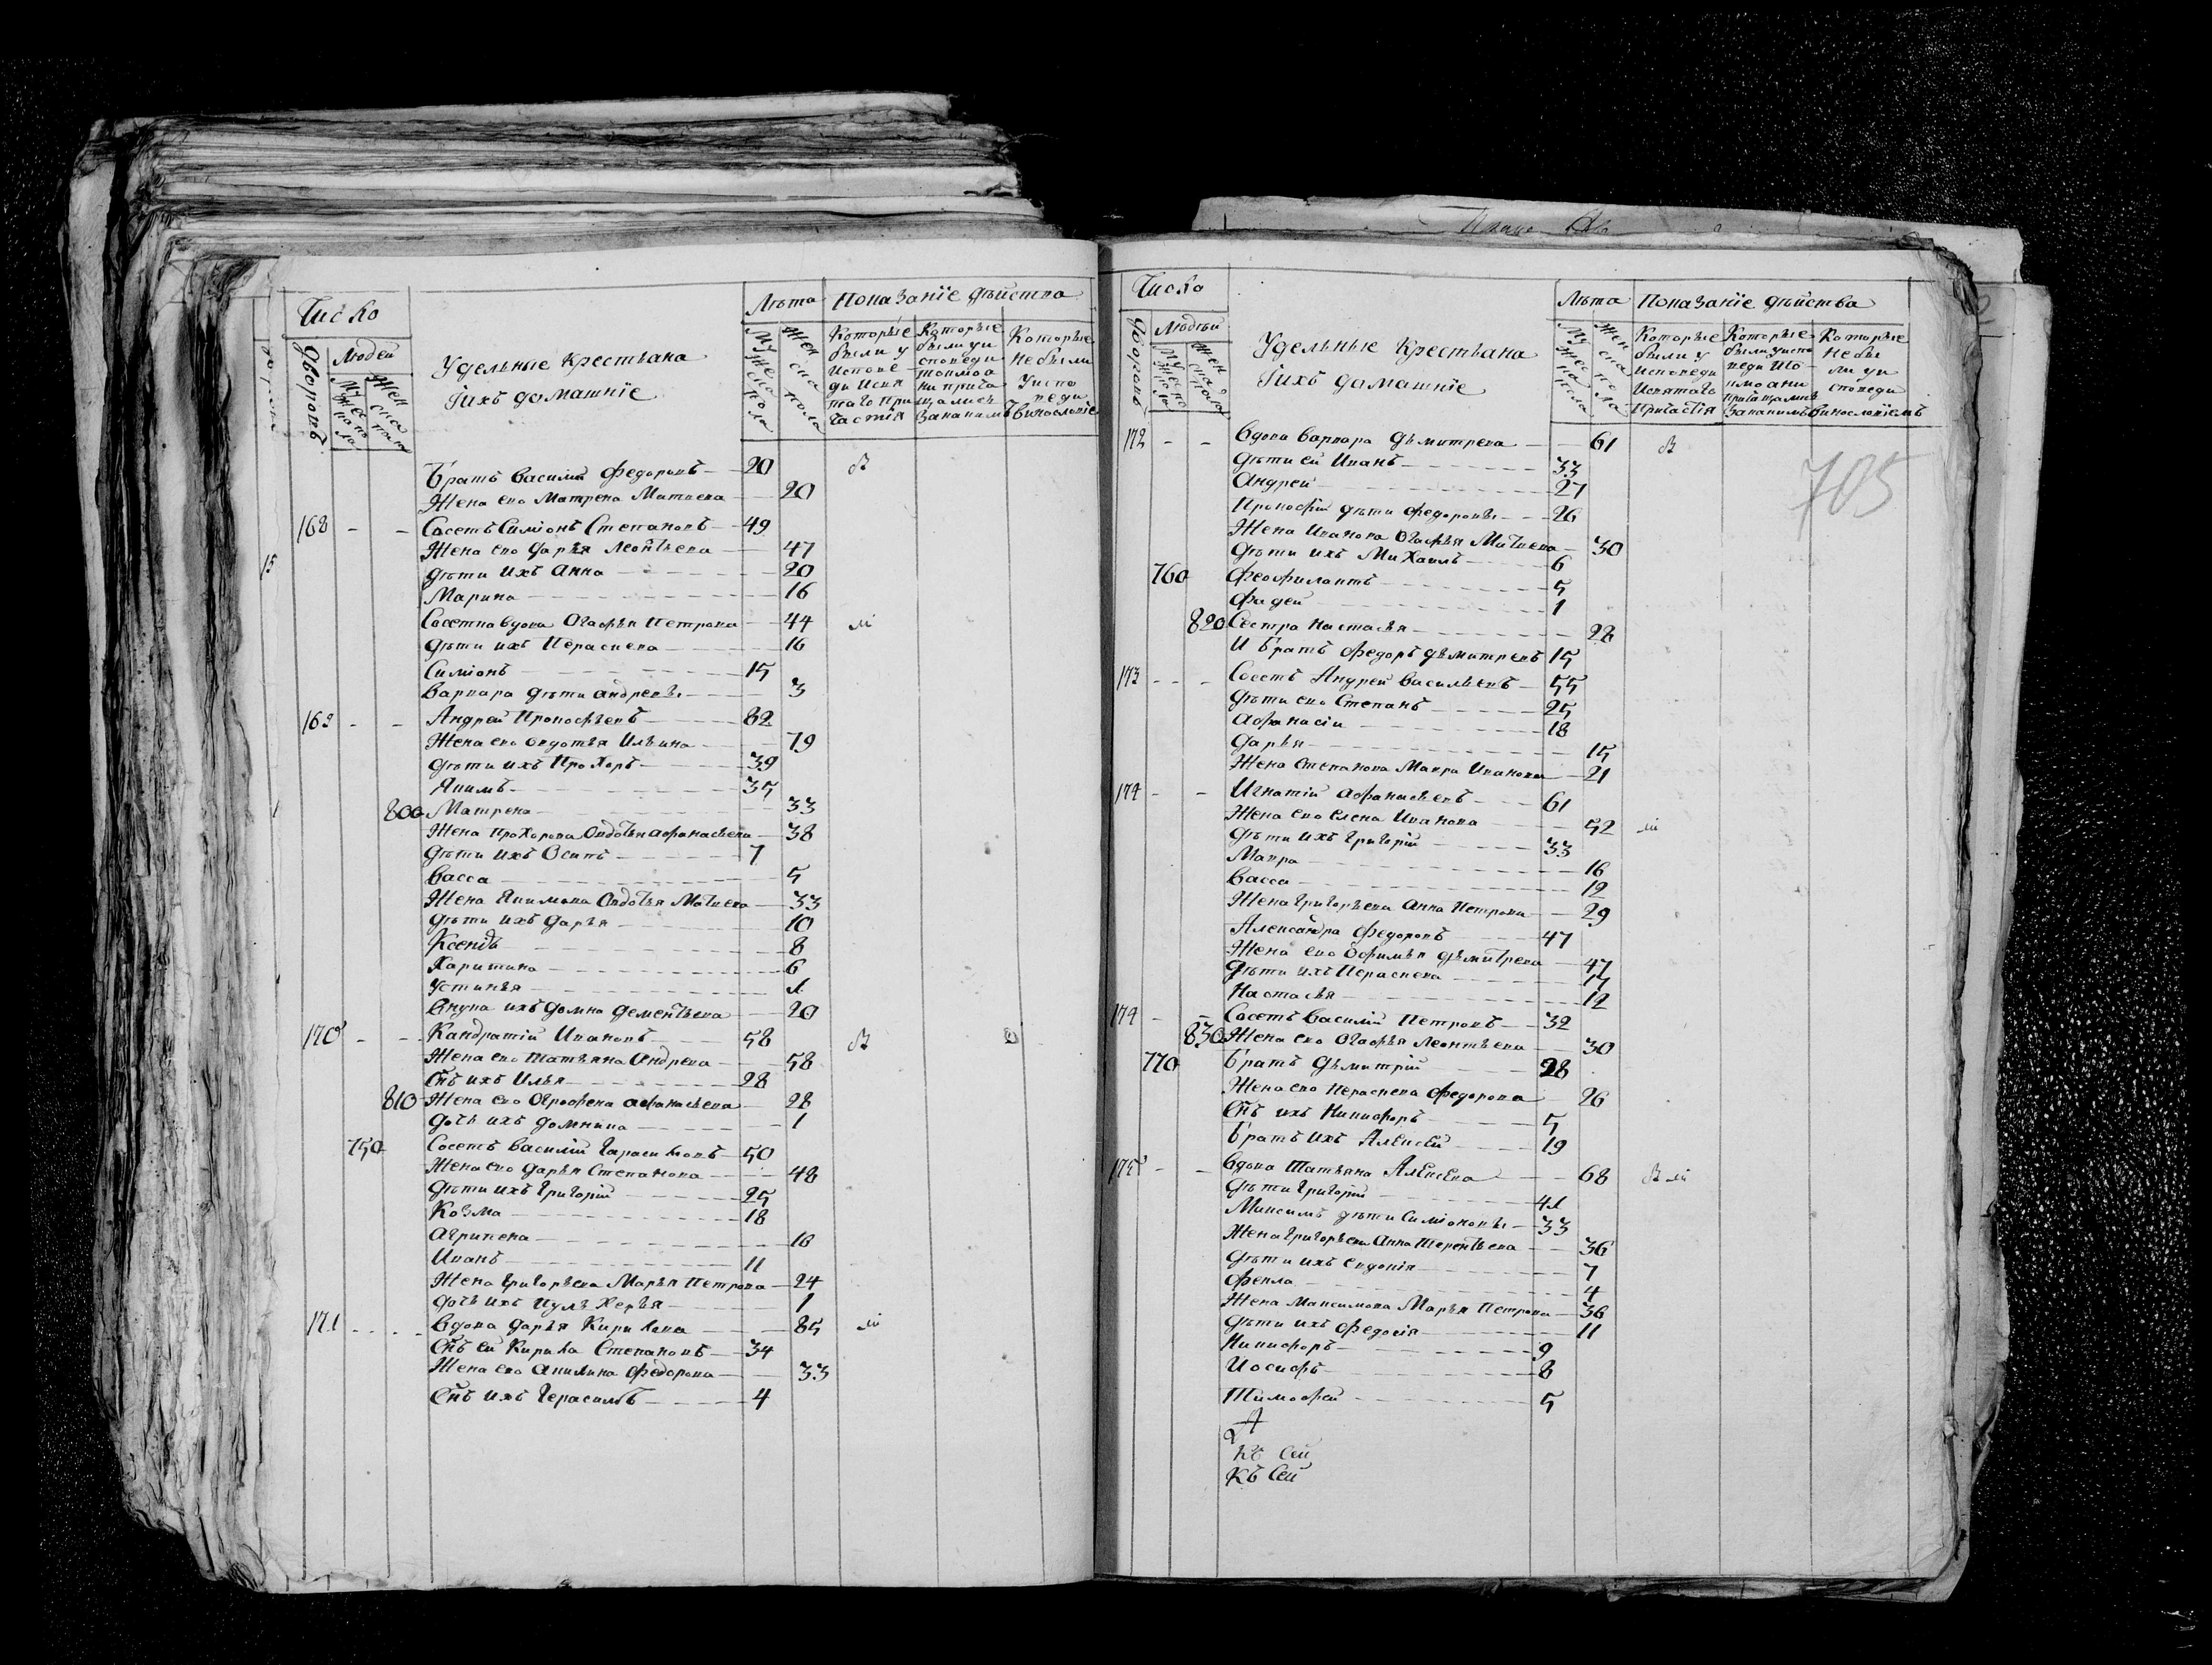 Число
Людей
Дворовъ
Мужеска пола
Женска пола
Удельные крестьяна
и ихъ домашніе
Лѣта
Мужеска пола
Женска пола
Показаніе дѣйства
Которые были у исповеди и святаго причастія
Которые были у исповеди токмо а не причащались за какимъ
Которые не были у исповеди
винословіе
Братъ Василий Федоровъ 20
Жена ево Матрена Матвева 20
168 Сосетъ Симіонъ Степановъ 49
Жена ево Дарья Леонтьева 47
15 Дѣти ихъ Анна 20
Марина 16
Сосетка вдова Огафья Петрова 44
Дѣти ихъ Пераскева 16
Симіонъ 15
Варвара дѣти Андревы 3
169 Андрей Прокофьевъ 82
Жена ево Овдотья Ильина 79
Дѣти ихъ Прохоръ 39
Якимъ 35
800 Матрена 33
Жена Прохорова Овдотья Афанасьева 38
Дѣти ихъ Осипъ 7
Васса 5
Жена Якимова Овдотья Матвева 33
Дѣти ихъ Дарья 10
Ксенія 8
Харитина 6
Устинья 1
Внука ихъ Домна Дементьева 20
170 Кандратій Ивановъ 58
Жена ево Татьяна Андрева 58
Снъ ихъ Илья 28
810 Жена ево Огрофена Афанасьева 28
Дочь ихъ Домника 1
750 Сосетъ Василий Гарасимовъ 50
Жена ево Дарья Степанова 48
Дѣти ихъ Григорій 25
Козма 18
Агрипена 16
Иванъ 11
Жена Григорьева Марья Петрова 24
Дочь ихъ Пульхерья 1
171 Вдова Дарья Кирилова 85
Снъ ей Кирила Степановъ 34
Жена ево Акилина Федорова 33
Снъ ихъ Герасимъ 4
Число
Людей
Дворовъ
Мужеска пола
Женска пола
Удельные крестьяна
и ихъ домашніе
Лѣта
Мужеска пола
Женска пола
Показаніе дѣйства
Которые были у исповеди и святаго причастія
Которые были у исповеди но токмо а не причащались за какимъ
Которые не были у исповеди
винословіемъ
705
172 Вдова Варвара Дьмитрева 61
Дѣти ей Иванъ 33
Андрей 27
Прокофій дѣти Федоровы 26
Жена Иванова Огафья Матвева 30
Дѣти ихъ Михаилъ 6
760 Феофилактъ 5
Фадей 1
820 Сестра Настасья 28
И братъ Федоръ Дьмитревъ 15
173 Сосетъ Андрей Васильевъ 55
Дѣти ево Степанъ 25
Афанасіи 18
Дарья 15
Жена Степанова Мавра Иванова 21
174 Игнатій Афанасьевъ 61
Жена ево Елена Иванова 52
Дѣти ихъ Григорій 33
Мавра 16
Васса 12
Жена Григорьева Анна Петрова 29
Александра Федоровъ 47
Жена ево Офимья Дьмитрева 47
Дѣти ихъ Пераскева 17
Настасья 12
174 Сосетъ Василий Петровъ 32
830 Жена ево Огафья Леонтьева 30
770 Братъ Дьмитрій 28
Жена ево Пераскева Федорова 26
Снъ ихъ Никифоръ 5
Братъ ихъ Алексей 19
175 Вдова Татьяна Алексева 68
Дѣти Григорій 41
Максимъ дѣти Симіоновы 33
Жена Григорьева Анна Терентьева 36
Дѣти ихъ Евдокія 7
Фекла 4
Жена Максимова Марья Петрова 36
Дѣти ихъ Федосія 11
Никифоръ 9
Иосифъ 8
Тимофей 5
къ сей
Къ сей